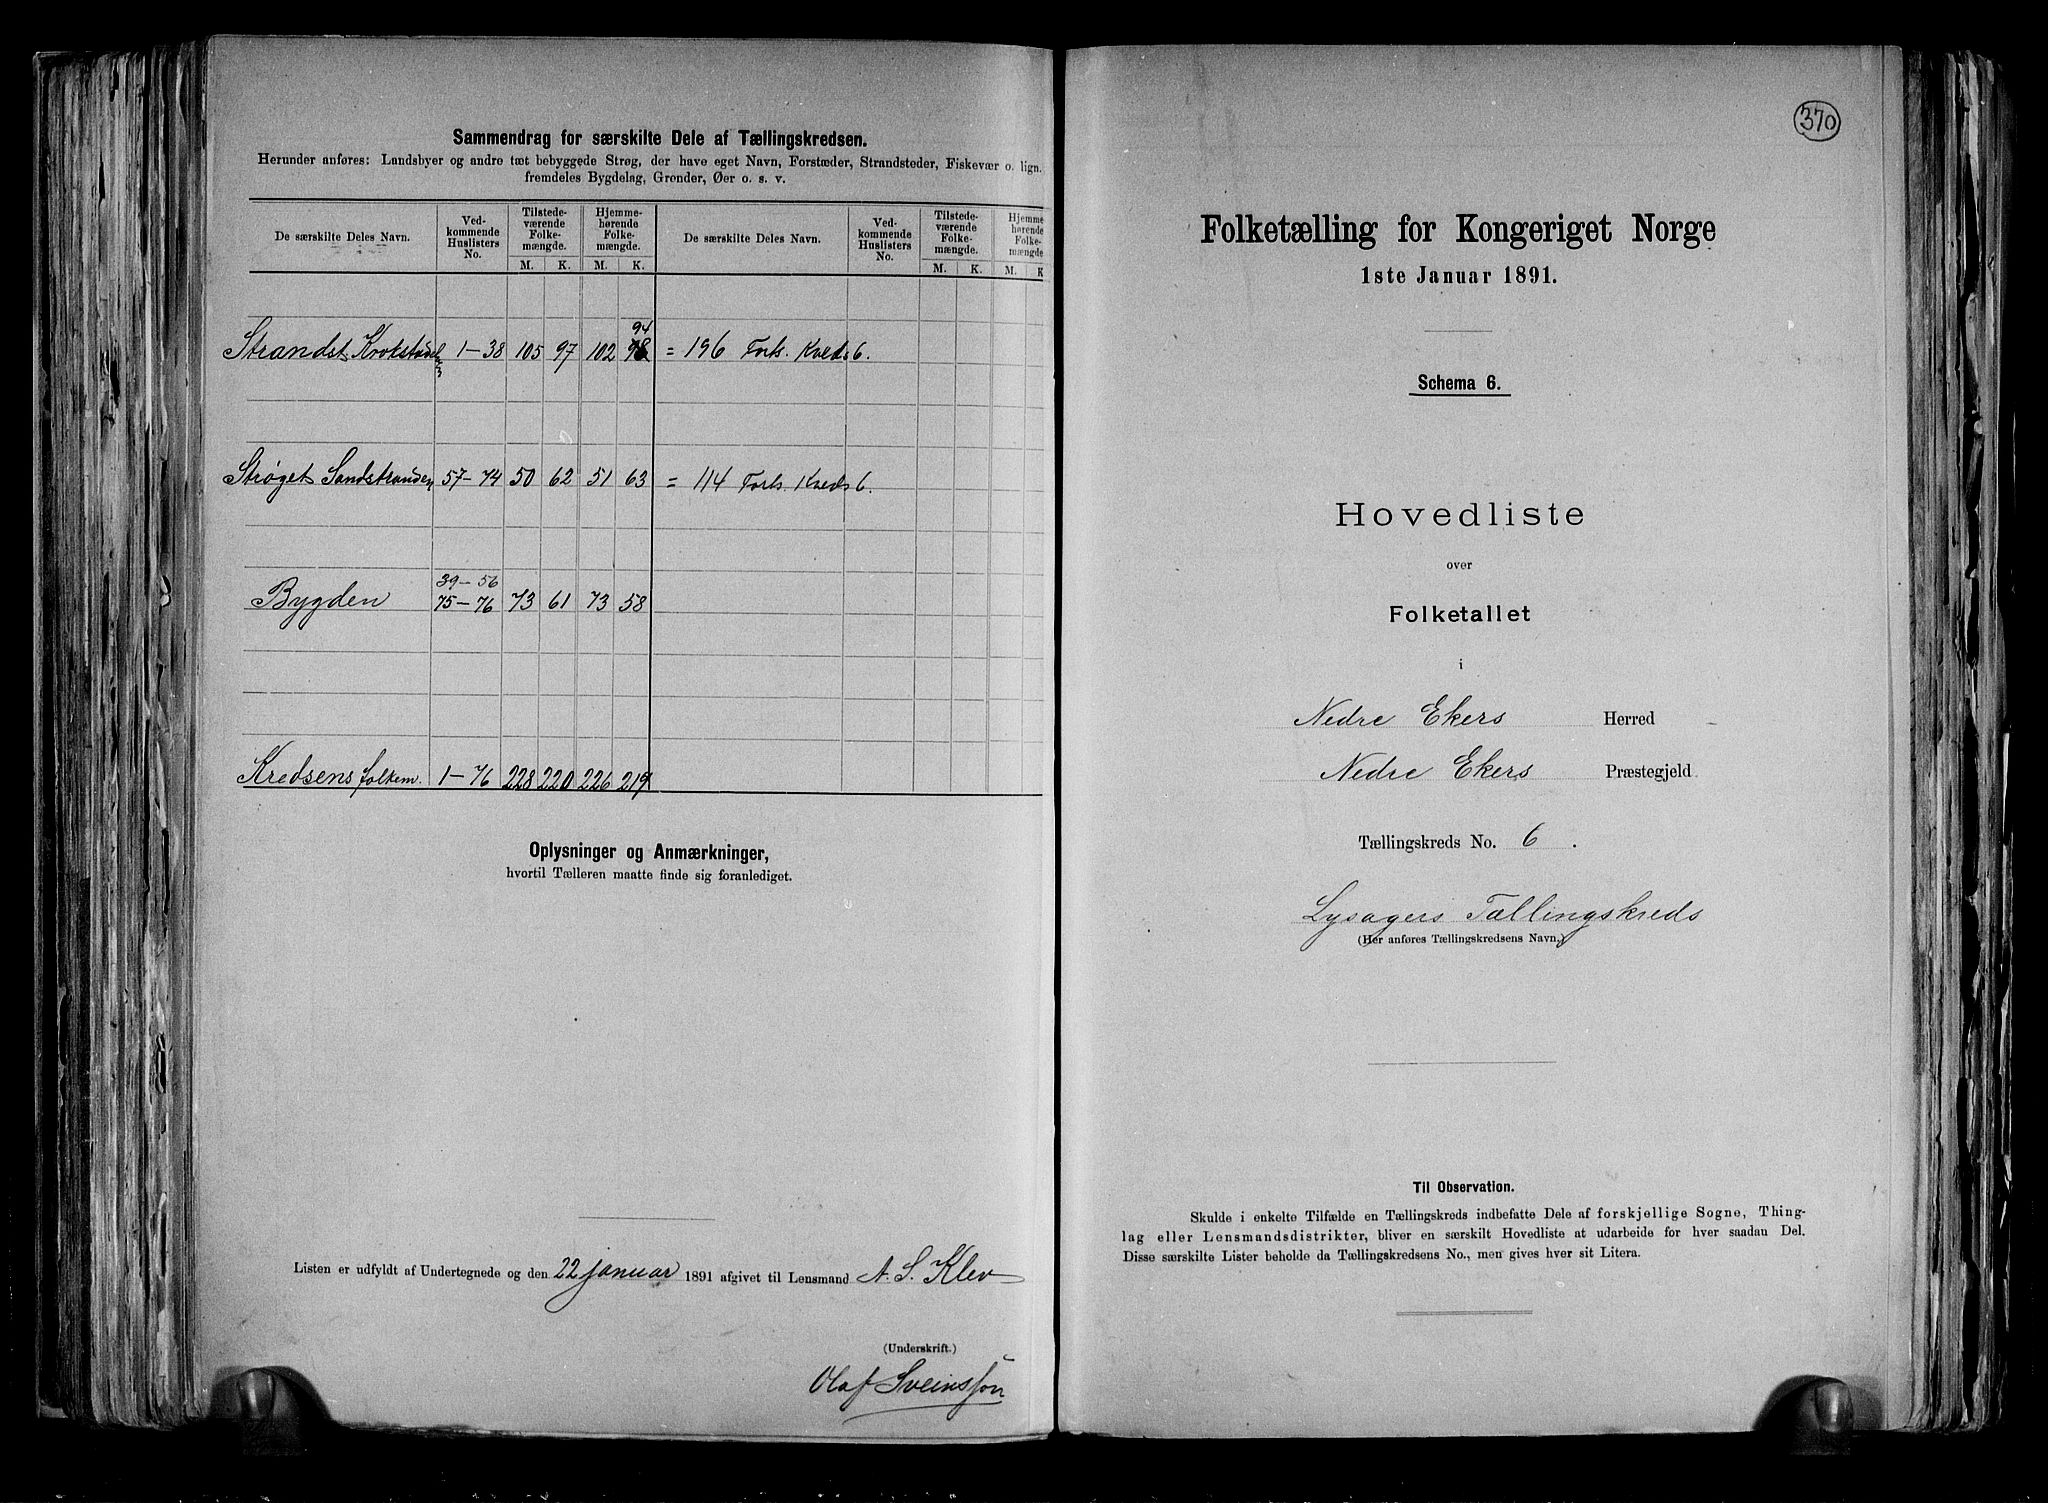 Sammendrag for særskilte Dele af Tællingskredsen.
Herunder anføres: Landsbyer og andre tæt bebyggede Strøg, der have eget Navn, Forstæder, Strandsteder, Fiskevær o. lign.
fremdeles Bygdelag, Grender, Øer o. s. v.
De særskilte Deles Navn. Ved-kommende Huslisters No. Tilstede-værende Folke-mængde. Hjemme-hørende Folke-mængde. De særskilte Deles Navn. Ved-kommende Huslisters No. Tilstede-værende Folke-mængde. Hjemme hørende Folke-mængde
M. K. M. K. M. K. M. K
94
Strandst. Krokstadel 1-38 105 97 102 98 = 196 Forts. Kreds 6.
Strøget Sandstranden 57-74 50 62 51 63 = 114 Forts. Kreds 6.
39-56
Bygden 75-76 73 61 73 58
Kredsens folkem. 1-76 228 220 226 219
Oplysninger og Anmærkninger,
hvortil Tælleren maatte finde sig foranlediget.
Listen er udfyldt af Undertegnede og den 22 januar 1891 afgivet til Lensmand A. S. Klev
(Underskrift.)
Olaf Sveinsson
370
Folketælling for Kongeriget Norge
1ste Januar 1891.
Schema 6.
Hovedliste
over
Folketallet
i
Nedre Ekers Herred
Nedre Ekers Præstegjeld
Tællingskreds No. 6.
Lysagers Tællingskreds
(Her anføres Tællingskredsens Navn.)
Til Observation.
Skulde i enkelte Tilfælde en Tællingskreds indbefatte Dele af forskjellige Sogne, Thing-
lag eller Lensmandsdistrikter, bliver en særskilt Hovedliste at udarbeide for hver saadan Del.
Disse særskilte Lister beholde da Tællingskredsens No., men gives hver sit Litera.